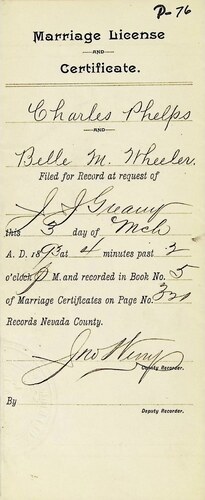 P-76
Marriage License
AND
Certificate.
Charles Phelps
AND
Belle M. Wheeler.
Filed for Record at request of
J J Greany
this 3 day of Mch
A. D. 1893 at 4 minutes past 2
o'clock P M. and recorded in Book No. 5
of Marriage Certificates on Page No.
Records Nevada County.
Jno
Deputy Recorder.
By
Deputy Recorder.